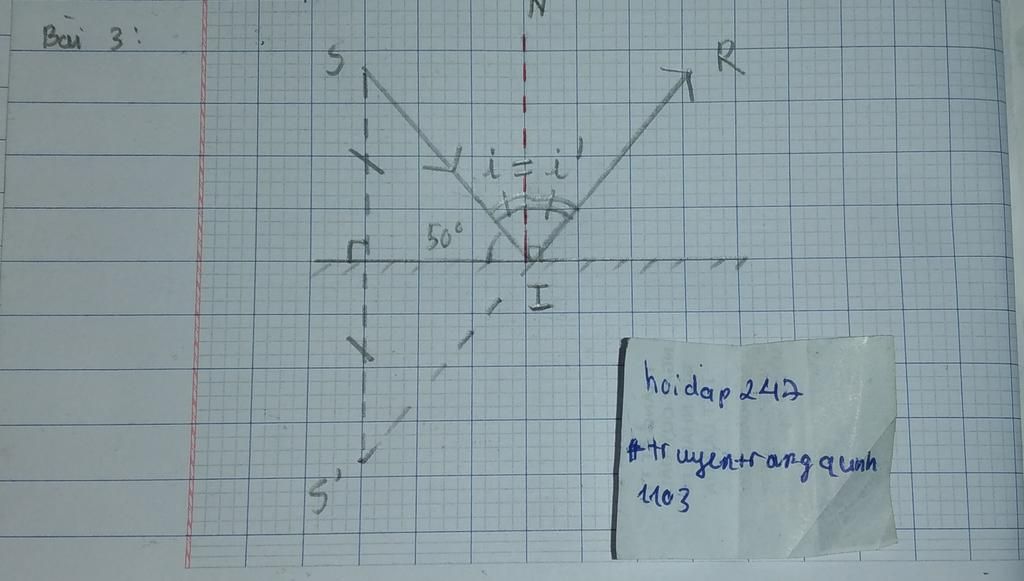 Bài 3:
N
S
R
i = i'
50°
I
S'
hoidap 247
#truyentrangquynh
1103